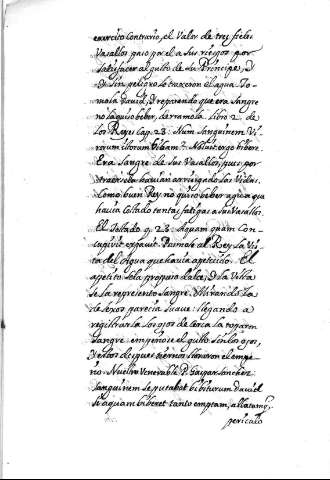 exercito contrario, el Valor de tres fieles
Vasallos paso por el a sus riesgos por
satisfacer al gusto de su Principe, I
sin peligro le traxeron el agua. To-
mola David, I reparando que era sangre
no la quiso beber, derramola. libro 2. de
los Reyes Cap. 23: Num Sanguinem Vi-
rorum illorum bibam? Noluit ergo bibere.
Era Sangre de sus Vasallos, pues por
traerla havian arriesgado sus Vidas.
Como buen Rey no quiso beber agua que
havia costado tantas fatigas a sus Vasallos.
El Tostado q. 23. Aquam quam Con-
cupivit expavit. Pasmose al Rey la Vis-
ta del Agua que havia apetecido. El
apetito se la propuso dulce, I la Vista
se la represento sangre. Mirandola
de lexos parecia suave: llegando a
registrarla los ojos de cerca la toparon
sangre
Nuestro Venerable P. Gaspar Sanchez
Sanguinem se putabat bibiturum David
si aquam biberet tanto emptam, allatam
periculo